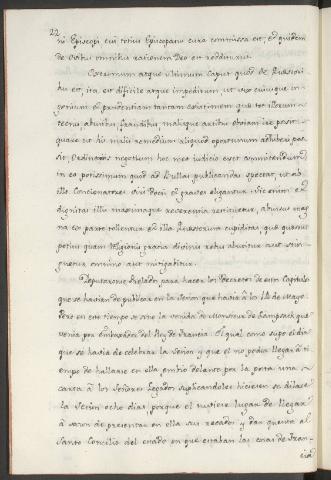 22
ni Episcopi cui totius Episcopatus cura commissa est, et quidem
de Deo reddituri.
Postremum atque ultimum caput quod de
hu est, ita est difficile atque impeditum, ut vix cuiusque in-
genium et prudentiam tantam existimem que tot illorum
tecnis, abusibus, fraudibus, malisque artibus obviam ire possit
quare ut his malis remedium aliquod oportunum adhiberi pos-
sit, Ordinariis negotium hoc meo iudicio esset committendum
in eo potissimum quod ad Bullas publicandas spectat, ut ab
illis Concionatores viri Docti et graves eligantur sic enim et
dignitas illis magnaque reverentia restituetur, abusus mag
na ex parte tolletur et illa Questorum cupiditas que questus
potius quam Religionis gratia divinis rebus abutitur aut extin-
guetur omnino aut mitigabitur.
Deputaronse Prelados para hacer los Decretos de estos Capitulos
que se habian de publicar en la Sesion que habia a los 14 de Mayo
Pero en este tiempo se supo la venida de Monsieur de Lampsack que
venia por embaxador del Rey de Francia. El qual como supo el dia
que se habia de celebrar la Sesion y que el no podia llegar a ti
empo de hallarse en ella embio delante por la posta una
carta á los Señores Legados suplicandoles hiciesen se dilatase
la Sesion ocho dias porque el tuviese lugar de llegar
á sazon de presentar en ella sus recados y dar quenta al
Santo Concilio del estado en que estaban las cosas de Fran-
cia